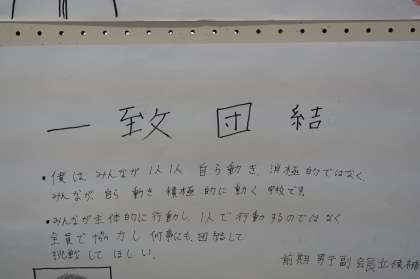 一致団結
・僕は、みんなが1人1人 自ら動き、消極的ではなく、
みんなが、自ら 動き 積極的に動く 学校です。
・みんなが主体的に行動し、1人で行動するのではなく
全員で協力し 何事にも、団結して
挑戦して ほしい。
前期 男子副会長立候補